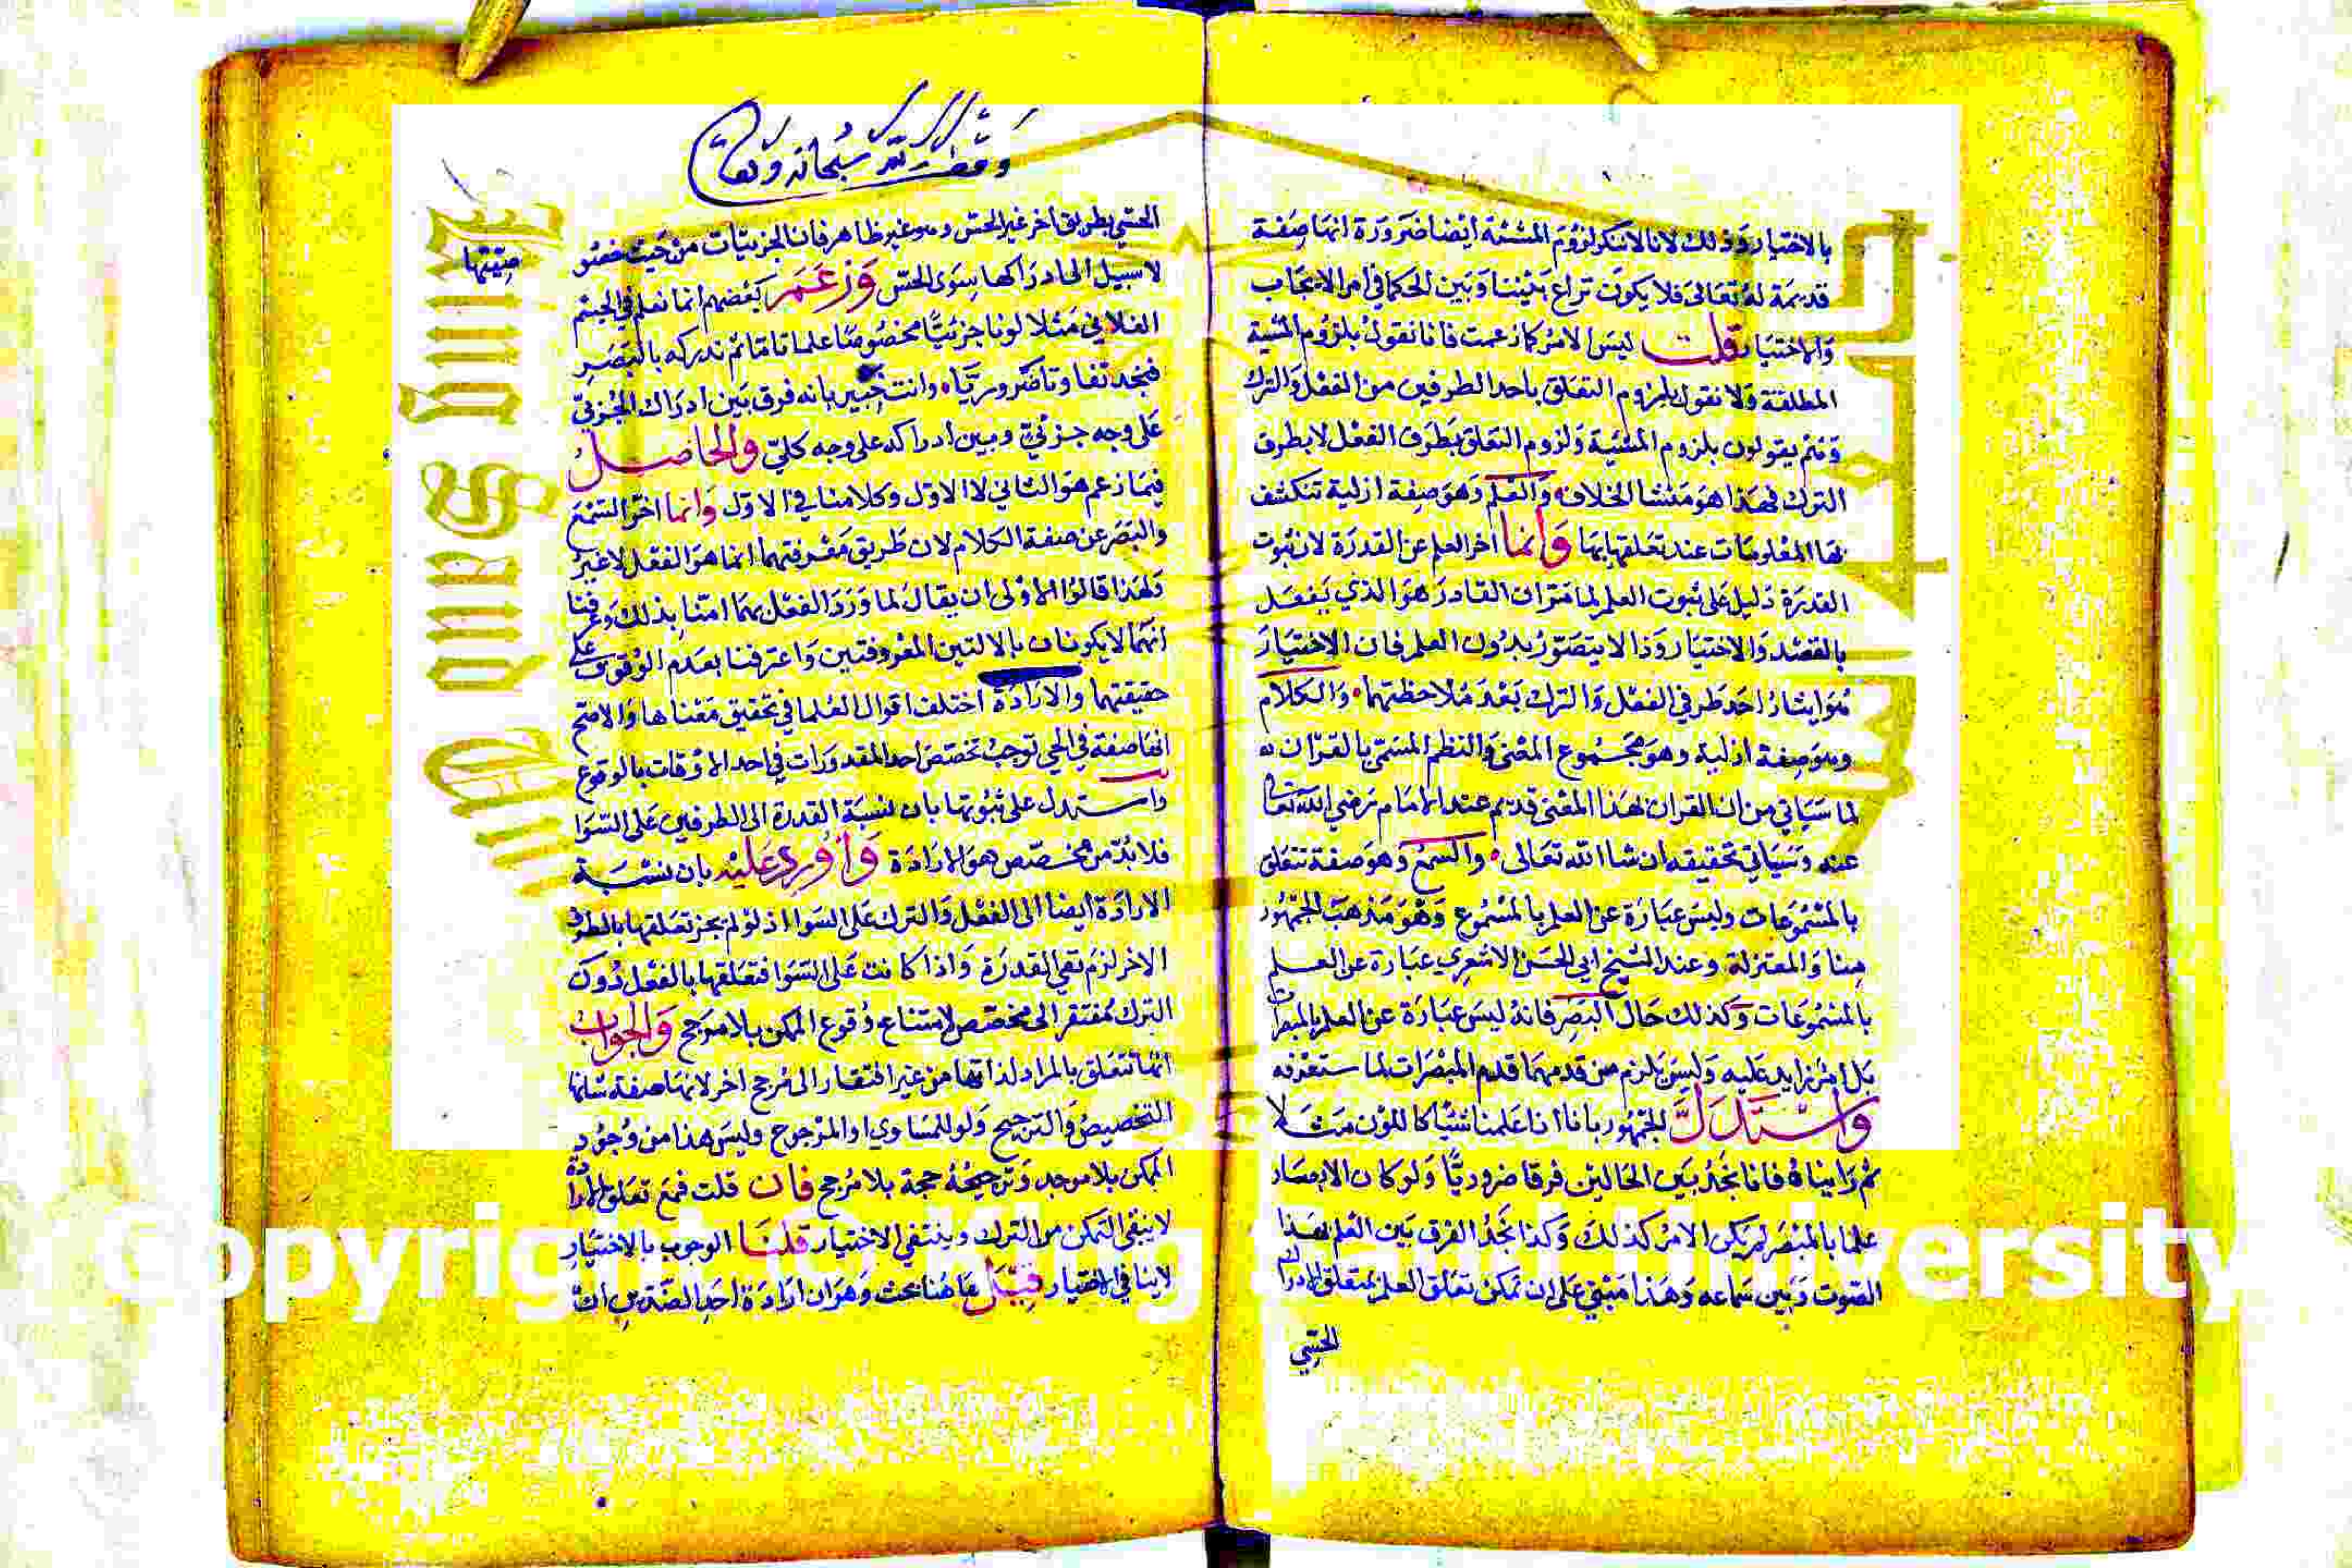 بالاختيار وذلك لانا لاننكر لزوم المشئة ايضا ضرورة انها صفة
قديمة له تعالى فلا يكون نزاع بيننا وبين الحكما في امر الايجاب
والاختيار قلت ليس الامر كما زعمت فانا نقول بلزوم المشية
المطلقة ولا نقول بلزوم التعلق باحد الطرفين من الفعل والترك
وهم يقولون بلزوم المشية ولزوم التعلق بطرف الفعل لا بطرف
الترك فهذا هو منشا الخلاف والعلم وهو صفة ازلية تنكشف
بها المعلومات عند تعلقها بها وانما اخر العلم عن القدرة لان ثبوت
القدرة دليل على ثبوت العلم لما مر ان القادر هو الذي يفعل
بالقصد والاختيار وذا لا يتصور بدون العلم فان الاختيار
هو ايثار احد طرفي الفعل والترك بعد ملاحظتهما والكلام
وهو صفة ازلية وهو مجموع المعنى والنظم المسمى بالقران
لما سياتي من ان القران لهذا المعنى قديم عند الامام رضي الله تعالى
عنه وسياتي تحقيقه ان شا الله تعالى والسمع وهو صفة تتعلق
بالمسموعات وليس عبارة عن العلم بالمسموع وهو مذهب الجمهور
منا والمعتزلة وعند الشيخ ابي الحسن الاشعري عبارة عن العلم
بالمسموعات وكذلك حال البصر فانه ليس عبارة عن العلم بالمبصرات
بل امر زايد عليه وليس يلزم من قدمهما قدم المبصرات لما ستعرفه
واستدل للجمهور بانا اذا علمنا شيا كاللون مثلا
ثم رايناه فانا نجد بين الحالين فرقا ضروريا ولو كان الابصار
علما بالمبصر لم يكن الامر كذلك وكذا نجد الفرق بين العلم بهذا
الصوت وبين سماعه وهذا مبني على ان تمكن تعلق العلم بمتعلق الادراك
الحسي
وقف لله سبحانه وتعالى
الحسي بطريق اخر غير الحس وهو غير ظاهر فان الجزييات من حيث خصو
صيتها
لا سبيل الى ادراكها سوى الحس وزعم بعضهم انما نعلم في الجسم
الفلاني مثلا لونا جزئيا مخصوصا علما تاما ثم ندركه بالبصر
فنجد تفاوتا ضروريا وانت خبير بانه فرق بين ادراك الجزئي
على وجه جزئي وبين ادراكه على وجه كلي والحاصل
فيما زعم هو الثاني لا الاول وكلامنا في الاول وانما اخر السمع
والبصر عن صفة الكلام لان طريق معرفتهما انما هو النقل لا غير
ولهذا قالوا الاولى ان يقال لما ورد النقل بهما امنا بذلك وعرفنا
انهما لا يكونان بالالتين المعروفتين واعترفنا بعدم الوقوف على
حقيقتهما والارادة اختلف اقوال العلما في تحقيق معناها والاصح
انها صفة في الحي توجب تخصص احد المقدورات في احد الاوقات بالوقوع
واستدل على ثبوتها بان نسبة القدرة الى الطرفين على السوا
فلا بد من مخصص هو الارادة واورد عليه بان نسبة
الارادة ايضا الى الفعل والترك على السوا اذ لو لم يجز تعلقها بالطرف
الاخر لزم نفي القدرة واذا كانت على السوا فتعلقها بالفعل دون
الترك مفتقر الى مخصص لامتناع وقوع الممكن بلا مرجح والجواب
انها تتعلق بالمراد لذاتها من غير افتقار الى مرجح اخر لانها صفة شانها
التخصيص والترجيح ولو للمساوي او المرجوح وليس هذا من وجود
الممكن بلا موجد وترجيحه بلا مرجح فان قلت فمع تعلق الارادة
لا يبقى التمكن من الترك وينتفي الاختيار قلنا الوجوب بالاختيار
لا ينافي الاختيار قيل هاهنا بحث وهو ان ارادة احد الضدين ان
Copyright © King Saud University